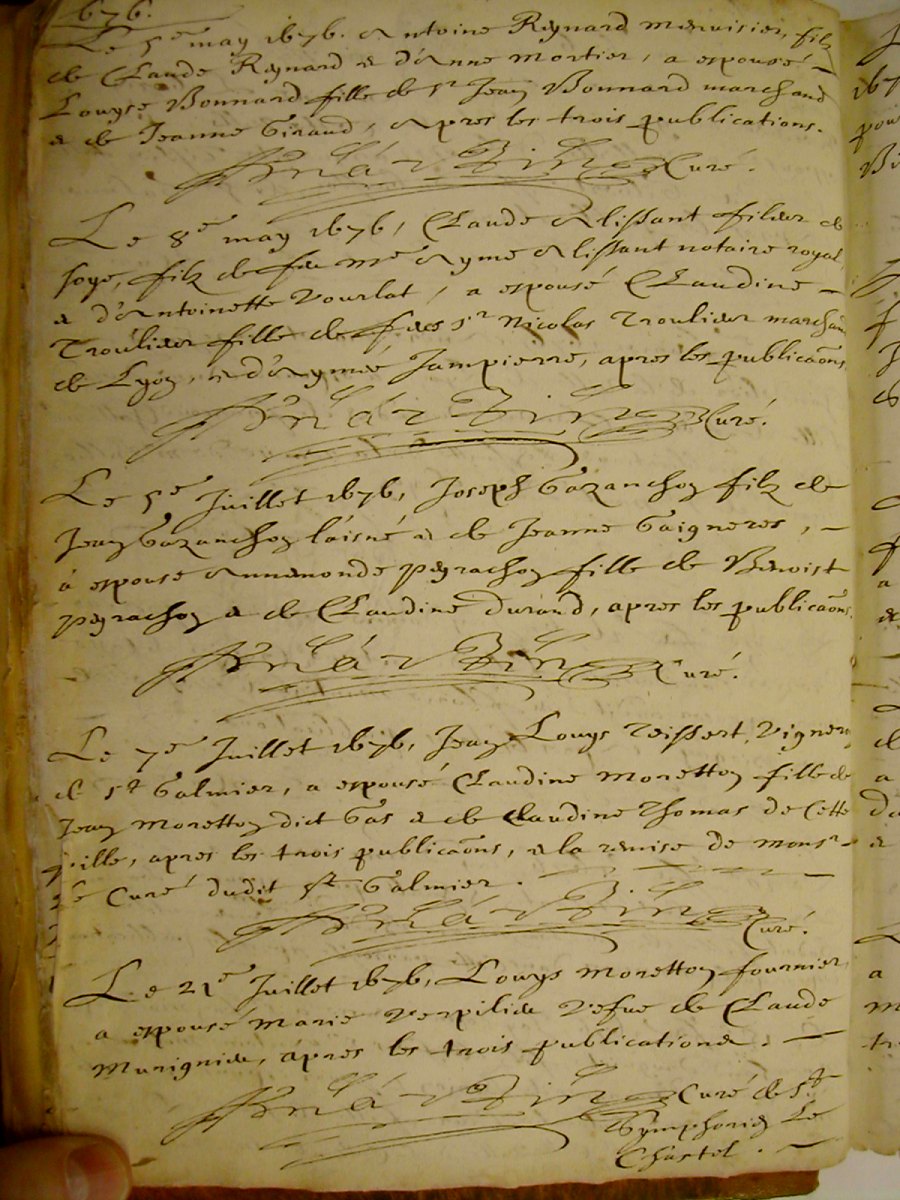 1676.
Le 5e may 1676. Antoine Reynard menuisier, filz
de Claude Reynard & d'Anne Mortier, a espousé
Louyse Bonnard fille de sr Jean Bonnard marchand
& de Jeanne Giraud, apres les trois publications.
Curé.
Le 8e may 1676, Claude Alissant de
soye, filz de feu Me Ayme Alissant notaire royal,
& d'Antoinette Vourlat, a espousé Claudine
Troulieur fille de feu sr Nicolas Troulieur marchand
de Lyon, & d'Aymée Jampierre, apres les publicaons
Curé.
Le 5e Juillet 1676, Joseph Gazanchon filz de
Jean Gazanchon l'áisné & de Jeanne Gaigneres,
á espousé Annemonde Peyrachon fille de Benoist
Peyrachon & de Claudine durand, apres les publicaons.
Curé.
Le 7e Juillet 1676, Jean Louys Teissert, Vigneron
de St Galmier, a espousé Claudine Moretton fille de
Jean Moretton dict Gas & de Claudine Thomas de cette
ville, apres les trois publicaons, & la remise de monsr
le Curé dudit St Galmier.
Curé.
Le 21e Juillet 1676, Louys Moretton fournier,
a espousé Marie Vefue de Claude
apres les trois publications.
Curé de St
Symphorien Le
Chastel.